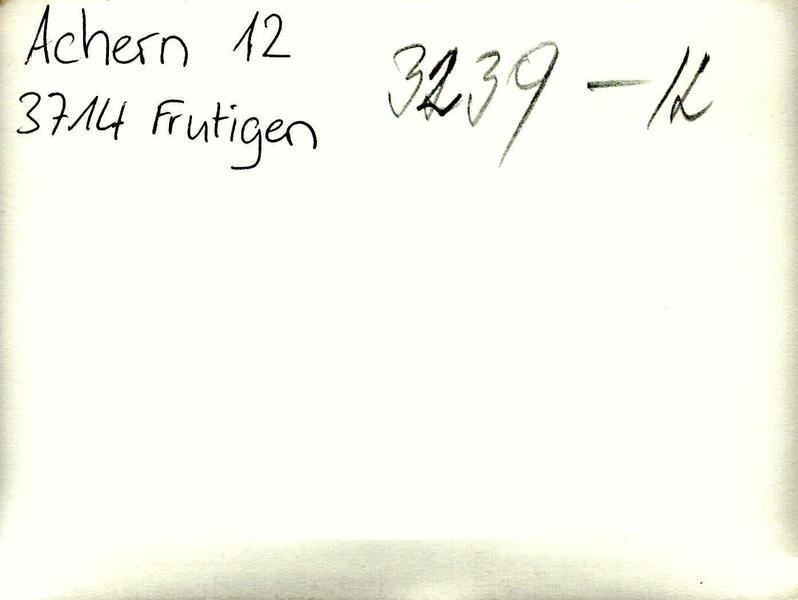 Achern 12
3714 Frutigen
3239 - 12